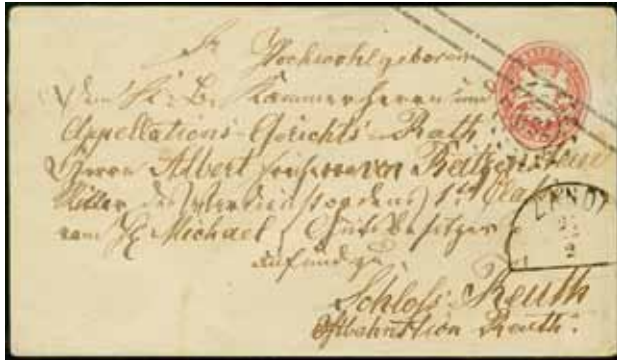 Sr Hochwohlgeboren
Dem K: B. Kammerherrn und
Appellations-Gerichts-Rath
Herrn Albert Freiherr von Reitzenstein
Ritter des Verdienstordens
vom Hl Michael, Gutsbesitzer
auf und zu
Schloss Reuth
Ostbahnstion Reuth.
LANDS